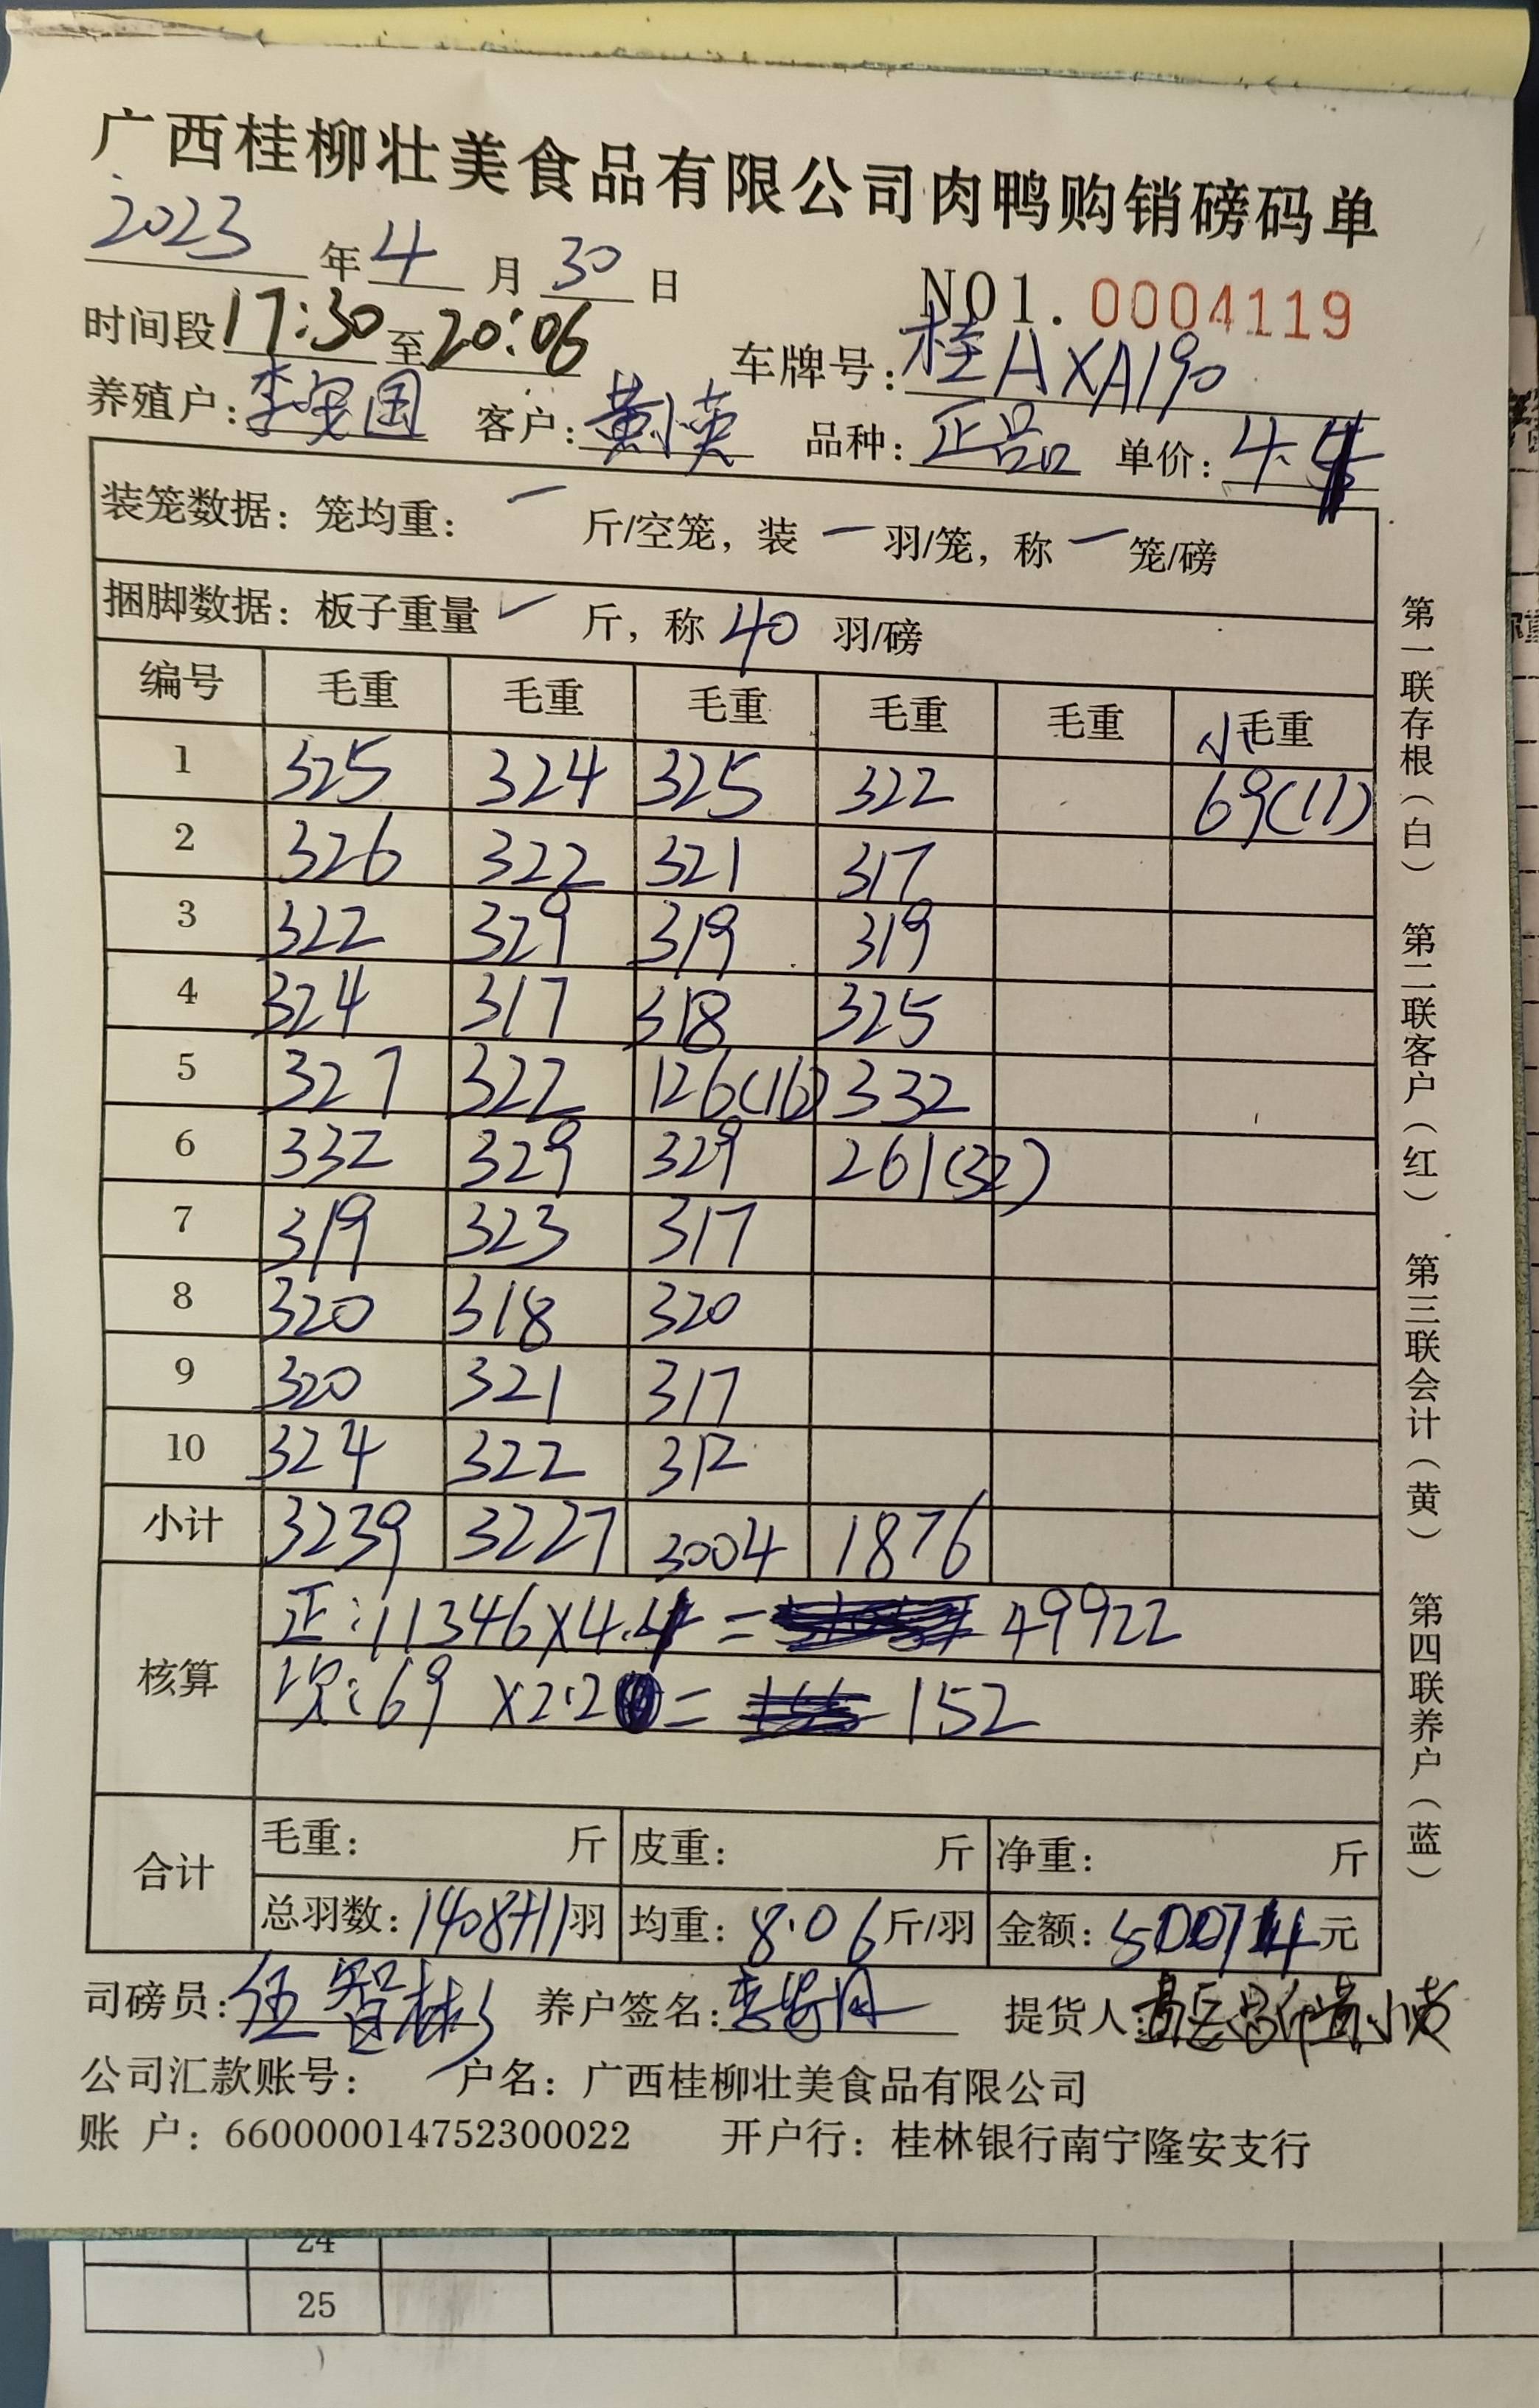 广西桂柳壮美食品有限公司肉鸭购销磅码单
2023年4月30日
NO1. 0004119
时间段17:30至20:06 车牌号:桂AXA190
养殖户: 客户:黄小英 品种:正品 单价:4.4
装笼数据:笼均重: — 斤/空笼,装 — 羽/笼,称 — 笼/磅
捆脚数据:板子重量 斤,称 40 羽/磅
编号 毛重 毛重 毛重 毛重 毛重 小毛重
1 325 324 325 322 69(11)
2 326 322 321 317
3 322 329 319 319
4 324 317 318 325
5 327 322 126(16) 332
6 332 329 329 261(32)
7 319 323 317
8 320 318 320
9 320 321 317
10 324 322 312
小计 3239 3227 3004 1876
核算 正:11346×4.4= 49922
次:69 ×2.2= 152
合计 毛重: 斤 皮重: 斤 净重: 斤
总羽数:1408+11羽 均重:8.06斤/羽 金额:50074元
司磅员:伍智彬 养户签名: 提货人:
公司汇款账号: 户名:广西桂柳壮美食品有限公司
账 户:660000014752300022 开户行:桂林银行南宁隆安支行
第一联存根(白) 第二联客户(红) 第三联会计(黄) 第四联养户(蓝)
24
25